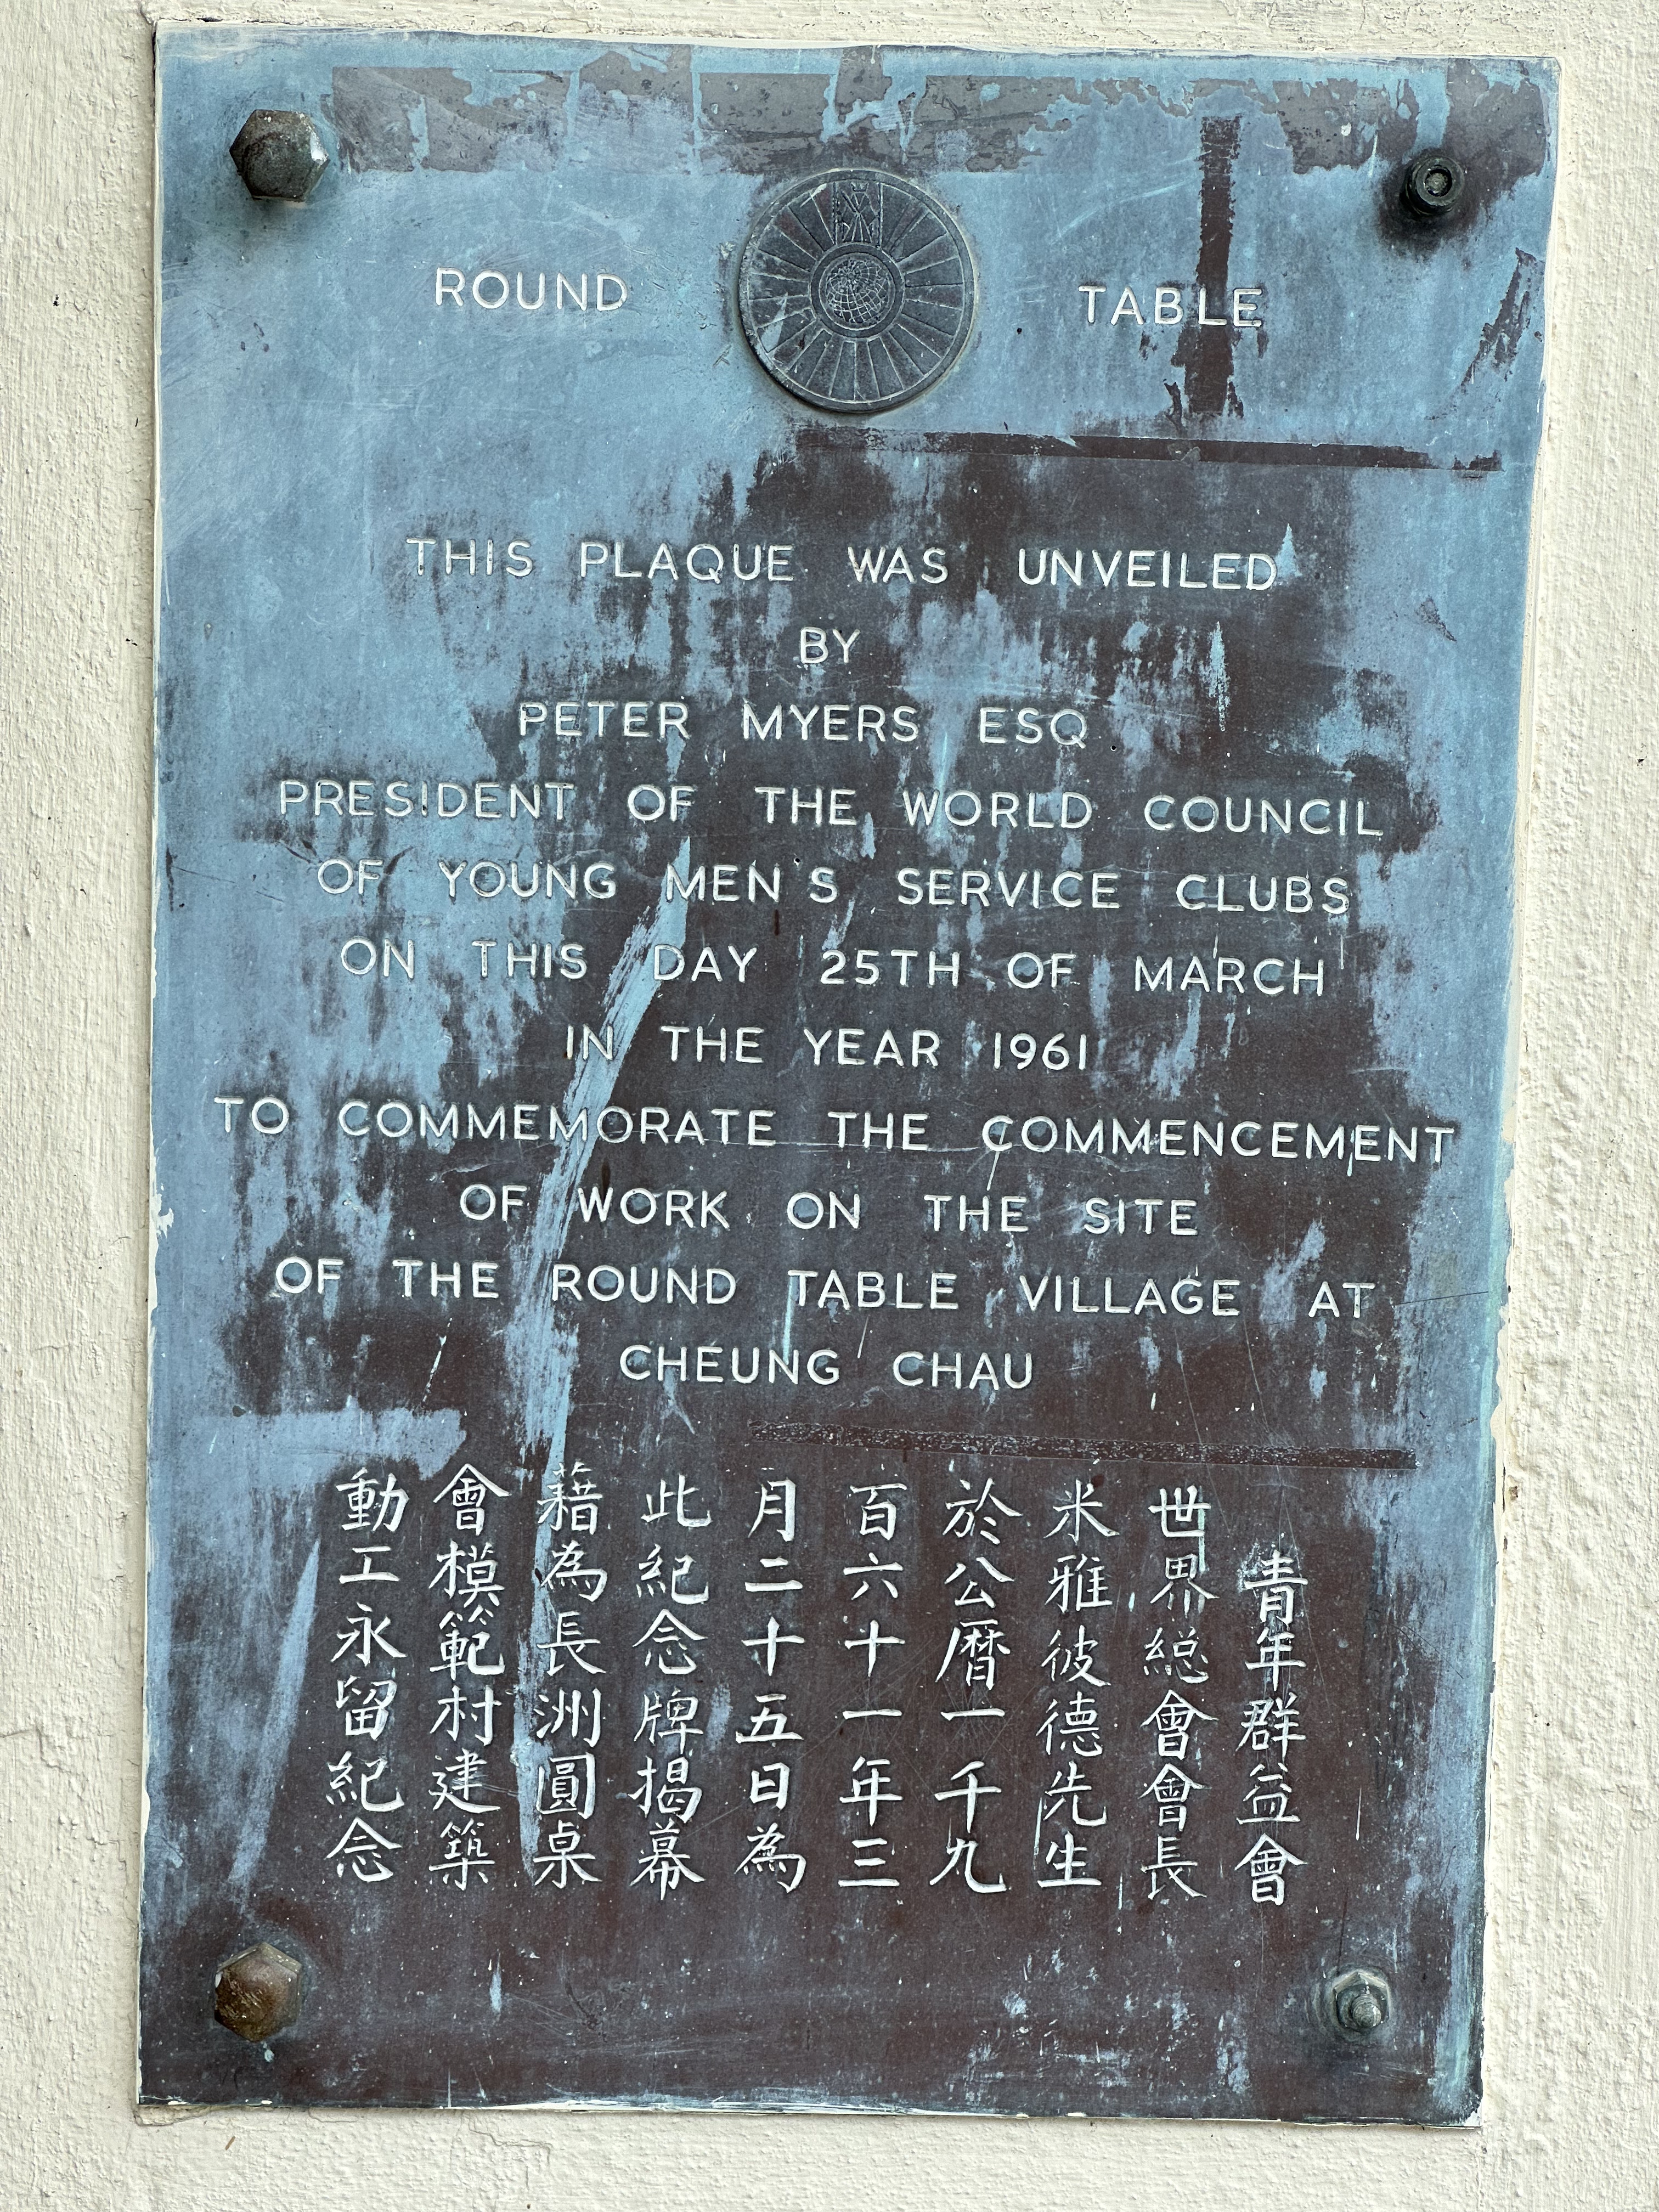 ROUND TABLE
THIS PLAQUE WAS UNVEILED
BY
PETER MYERS ESQ
PRESIDENT OF THE WORLD COUNCIL
OF YOUNG MEN'S SERVICE CLUBS
ON THIS DAY 25TH OF MARCH
IN THE YEAR 1961
TO COMMEMORATE THE COMMENCEMENT
OF WORK ON THE SITE
OF THE ROUND TABLE VILLAGE AT
CHEUNG CHAU
青年群益會
世界総會會長
米雅彼德先生
於公曆一千九
百六十一年三
月二十五日為
此紀念牌揭幕
藉為長洲圓桌
會模範村建築
動工永留紀念